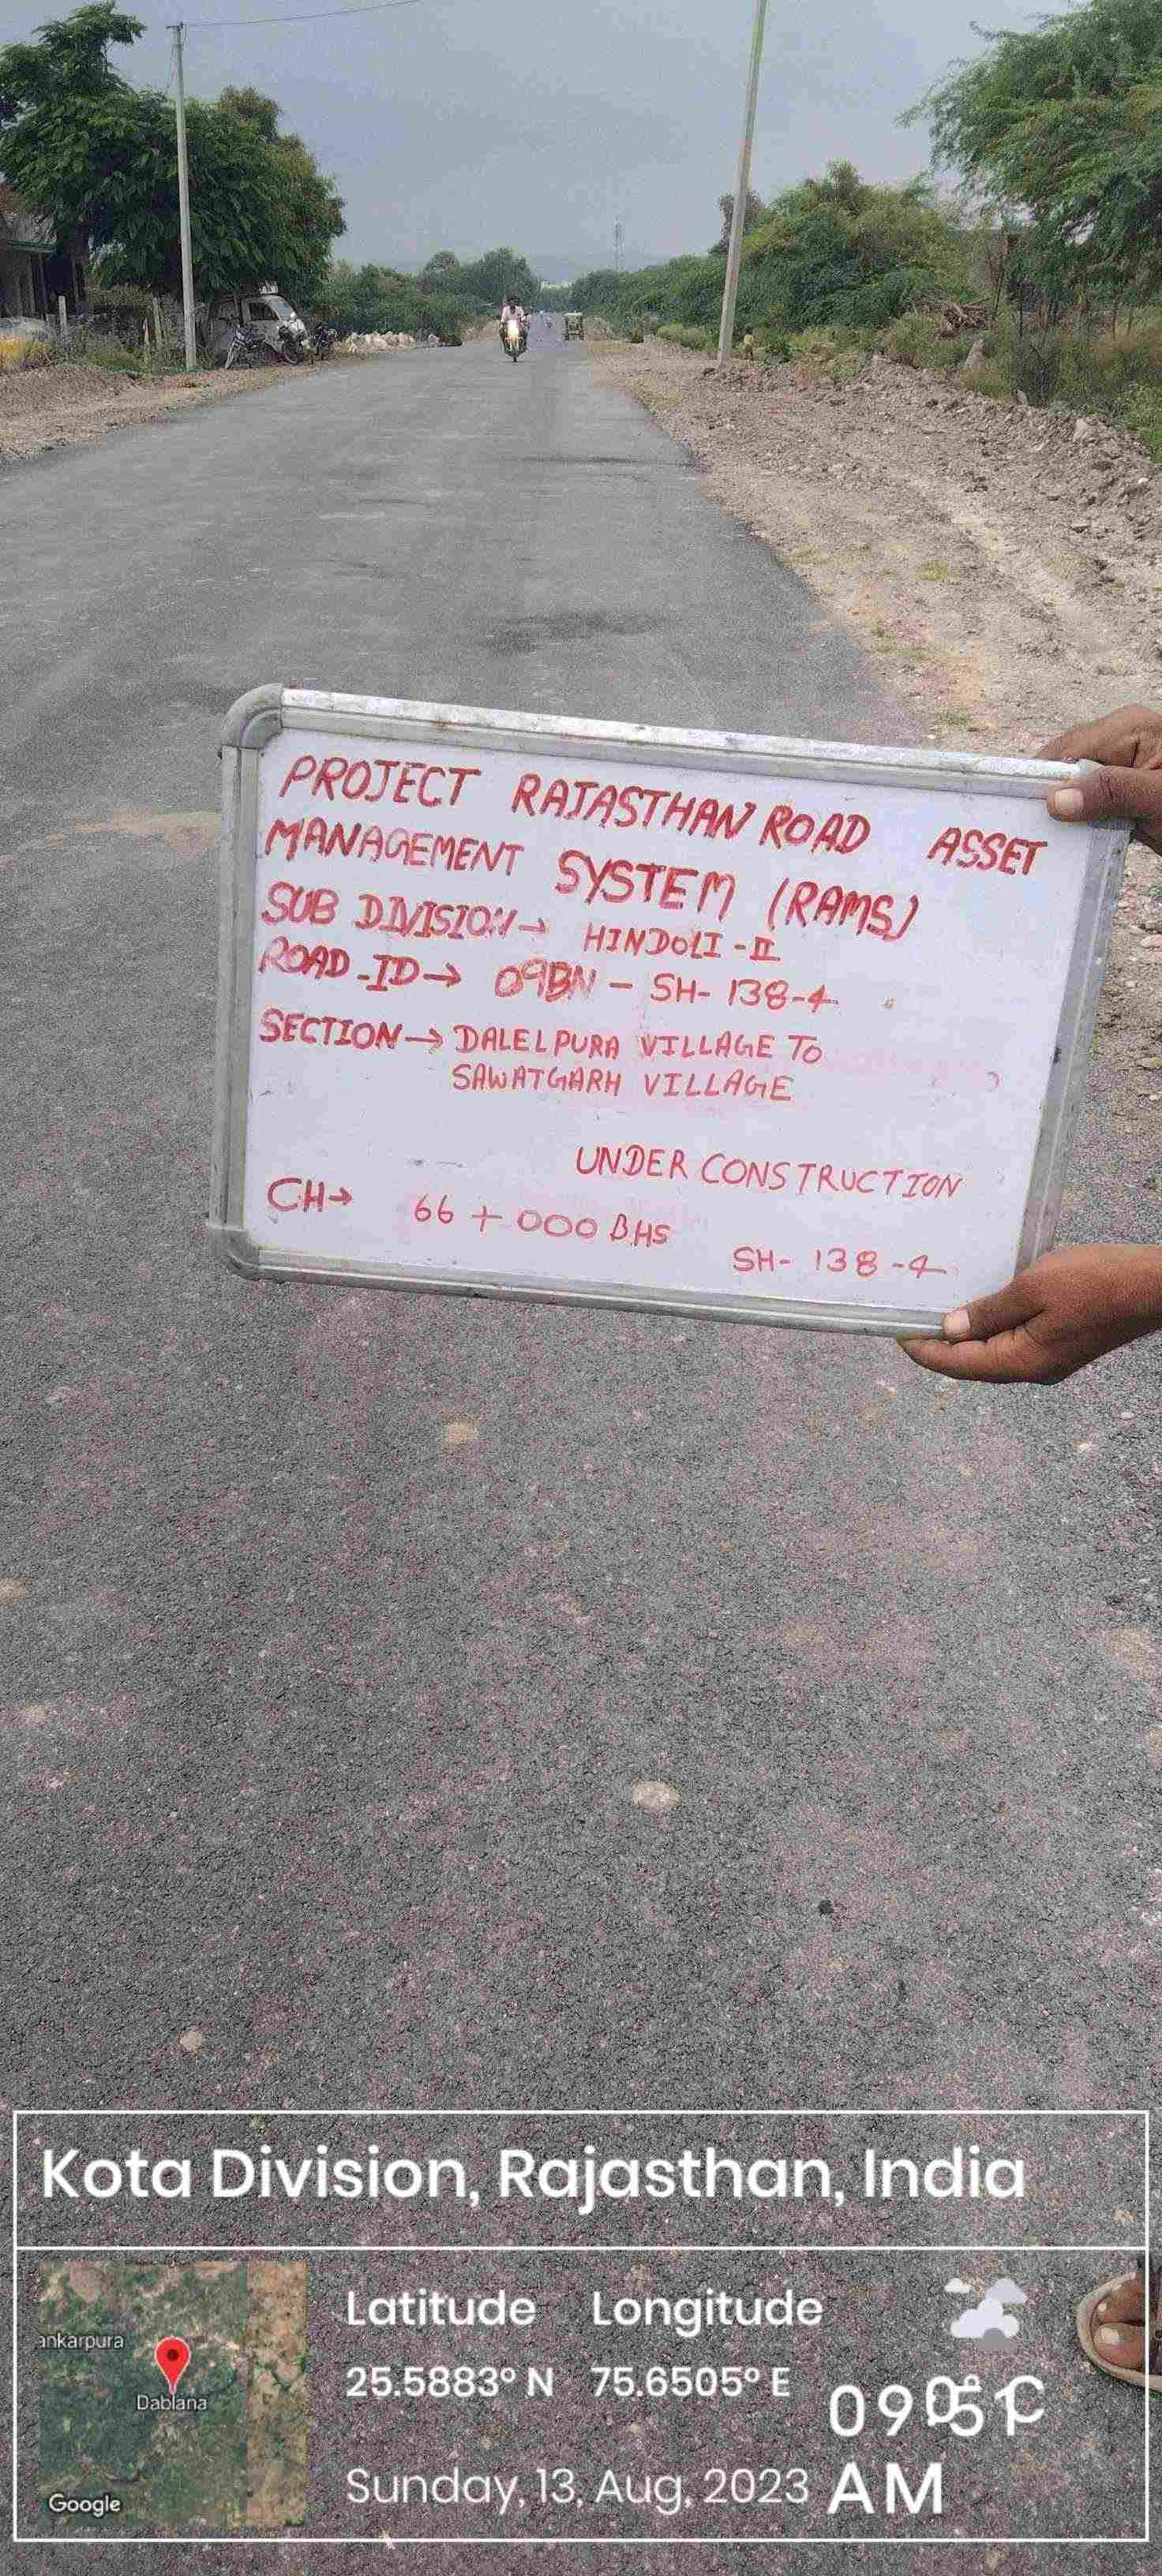 PROJECT RAJASTHAN ROAD ASSET
MANAGEMENT SYSTEM (RAMS)
SUB DIVISION→ HINDOLI-II
ROAD-ID→ 09BN - SH-138-4
SECTION→ DALELPURA VILLAGE TO
SAWATGARH VILLAGE
UNDER CONSTRUCTION
CH→ 66+000 BHS
SH-138-4
Kota Division, Rajasthan, India
ankarpura
Dablana
Google
Latitude Longitude
25.5883° N 75.6505° E
Sunday, 13, Aug, 2023
AM